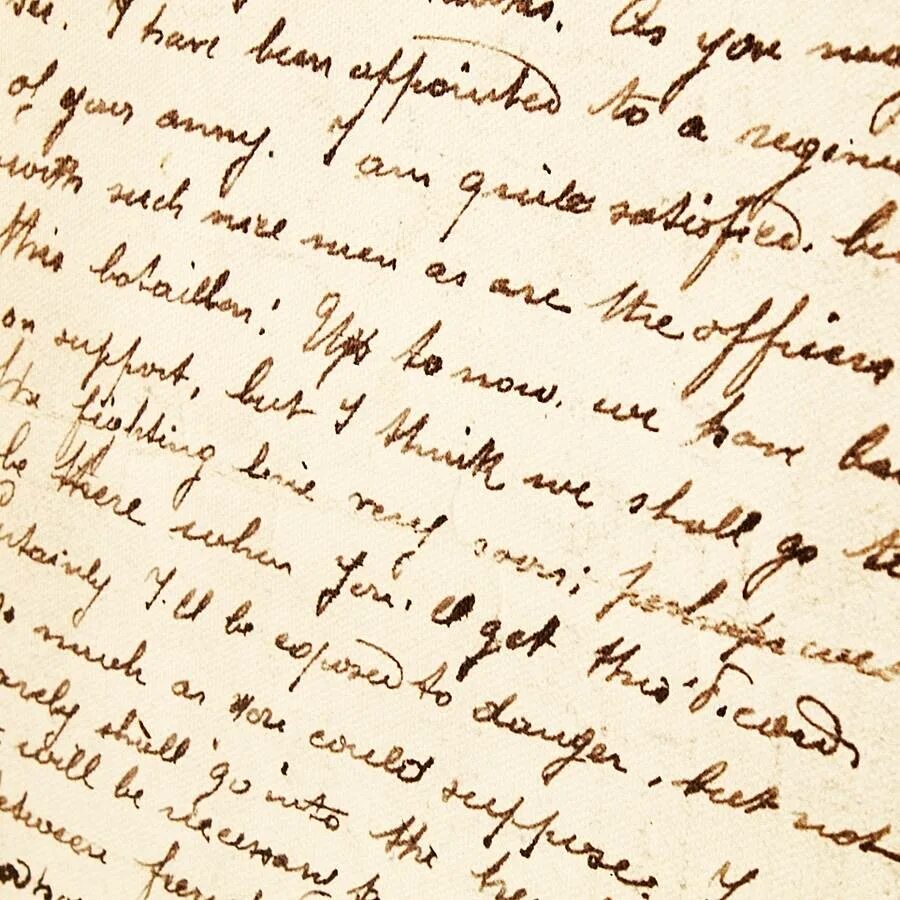 As you may
see. I have been appointed to a regime
of your army. I am quite satisfied. be
with such nice men as are the officers
this bataillon! Up to now, we have be
on support, but I think we shall go to
the fighting line very soon; perhaps we
be there when you'll get this P. card,
ertainly I'll be exposed to danger, but not
so much as you could suppose. I
arely shall go into the
will be necessary
between